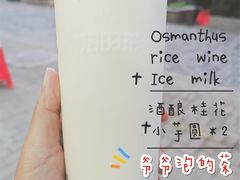 Osmanthus
rice wine
+ Ice milk
酒酿桂花
+小芋圆*2
爷爷泡的茶